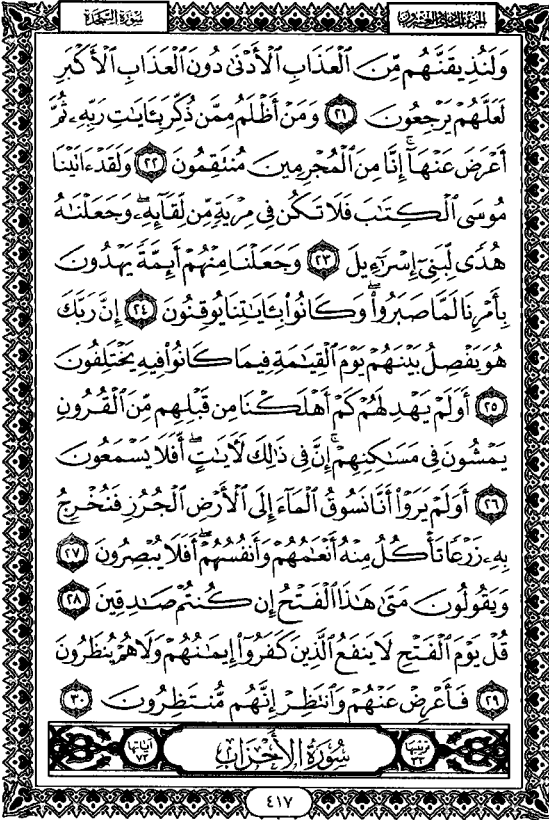 سُورَةُ السَّجْدَةِ
الجزء الحادي والعشرون
وَلَنُذِيقَنَّهُم مِّنَ ٱلْعَذَابِ ٱلْأَدْنَىٰ دُونَ ٱلْعَذَابِ ٱلْأَكْبَرِ
لَعَلَّهُمْ يَرْجِعُونَ ٢١ وَمَنْ أَظْلَمُ مِمَّن ذُكِّرَ بِـَٔايَٰتِ رَبِّهِۦ ثُمَّ
أَعْرَضَ عَنْهَآ ۚ إِنَّا مِنَ ٱلْمُجْرِمِينَ مُنتَقِمُونَ ٢٢ وَلَقَدْ ءَاتَيْنَا
مُوسَى ٱلْكِتَٰبَ فَلَا تَكُن فِى مِرْيَةٍ مِّن لِّقَآئِهِۦ ۖ وَجَعَلْنَٰهُ
هُدًى لِّبَنِىٓ إِسْرَٰٓءِيلَ ٢٣ وَجَعَلْنَا مِنْهُمْ أَئِمَّةً يَهْدُونَ
بِأَمْرِنَا لَمَّا صَبَرُوا۟ ۖ وَكَانُوا۟ بِـَٔايَٰتِنَا يُوقِنُونَ ٢٤ إِنَّ رَبَّكَ
هُوَ يَفْصِلُ بَيْنَهُمْ يَوْمَ ٱلْقِيَٰمَةِ فِيمَا كَانُوا۟ فِيهِ يَخْتَلِفُونَ
٢٥ أَوَلَمْ يَهْدِ لَهُمْ كَمْ أَهْلَكْنَا مِن قَبْلِهِم مِّنَ ٱلْقُرُونِ
يَمْشُونَ فِى مَسَٰكِنِهِمْ ۚ إِنَّ فِى ذَٰلِكَ لَـَٔايَٰتٍ ۖ أَفَلَا يَسْمَعُونَ
٢٦ أَوَلَمْ يَرَوْا۟ أَنَّا نَسُوقُ ٱلْمَآءَ إِلَى ٱلْأَرْضِ ٱلْجُرُزِ فَنُخْرِجُ
بِهِۦ زَرْعًا تَأْكُلُ مِنْهُ أَنْعَٰمُهُمْ وَأَنفُسُهُمْ ۖ أَفَلَا يُبْصِرُونَ ٢٧
وَيَقُولُونَ مَتَىٰ هَٰذَا ٱلْفَتْحُ إِن كُنتُمْ صَٰدِقِينَ ٢٨
قُلْ يَوْمَ ٱلْفَتْحِ لَا يَنفَعُ ٱلَّذِينَ كَفَرُوٓا۟ إِيمَٰنُهُمْ وَلَا هُمْ يُنظَرُونَ
٢٩ فَأَعْرِضْ عَنْهُمْ وَٱنتَظِرْ إِنَّهُم مُّنتَظِرُونَ ٣٠
ترتيبها ٣٣ سُورَةُ الأَحْزَابِ آياتها ٧٣
٤١٧